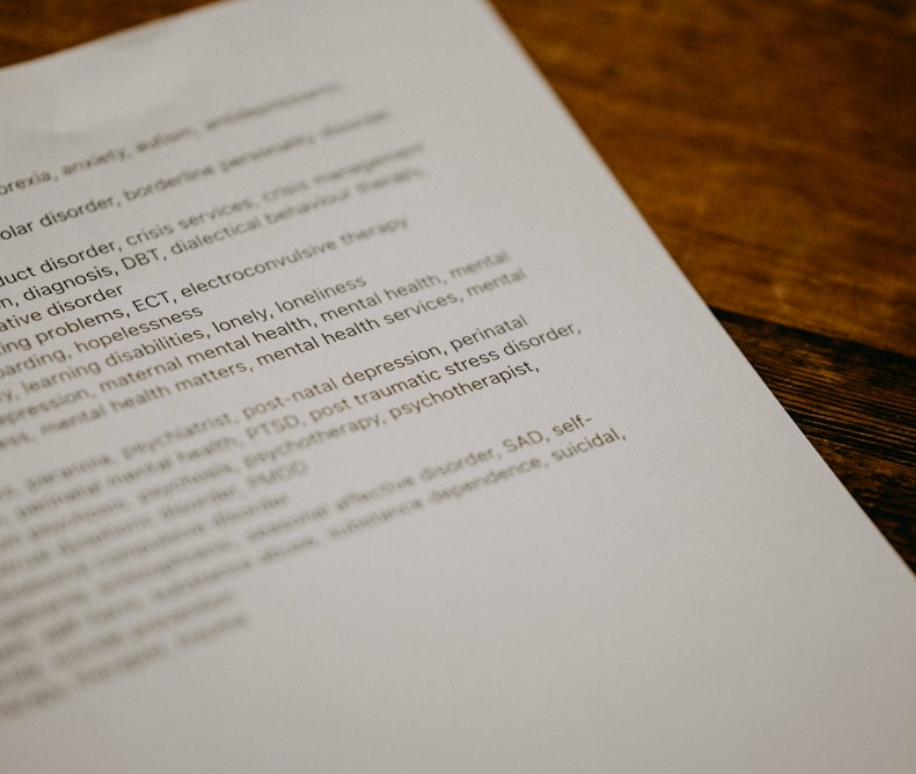 orexia, anxiety, autism, antidepressants,
olar disorder, borderline personality disorder,
duct disorder, crisis services, crisis management
n, diagnosis, DBT, dialectical behaviour therapy,
ative disorder
ing problems, ECT, electroconvulsive therapy
oarding, hopelessness
y, learning disabilities, lonely, loneliness
epression, maternal mental health, mental health, mental
ess, mental health matters, mental health services, mental
paranoia, psychiatrist, post-natal depression, perinatal
perinatal mental health, PTSD, post traumatic stress disorder,
psychosis, psychosis, psychotherapy, psychotherapist,
disorder, PMDD
compulsive disorder
schizophrenic, seasonal affective disorder, SAD, self-
self harm, substance abuse, substance dependence, suicidal,